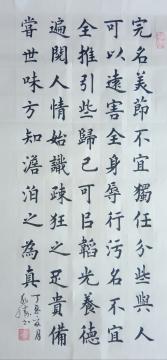 完名美節不宜獨任分些與人
可以遠害全身辱行污名不宜
全推引些歸己可㠯韜光養德
遍閱人情始識疎狂之足貴備
嘗世味方知澹泊之為真